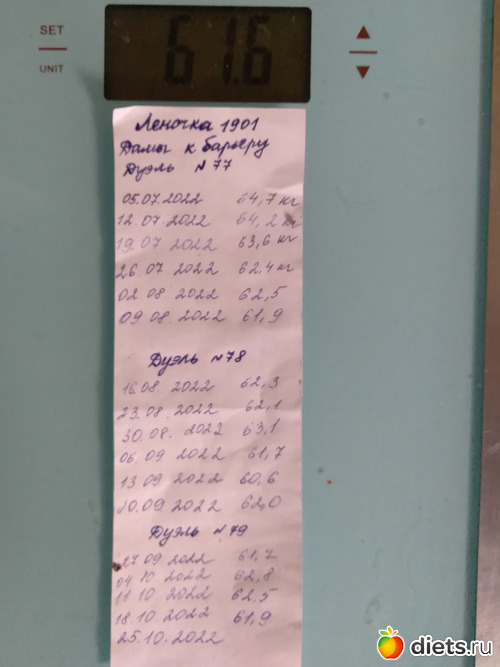 SET
UNIT
61.6
Леночка 1901
Дамы к барьеру
Дуэль №77
05.07.2022 64,7 кг
12.07.2022 64,2 кг
19.07 2022 63,6 кг
26.07 2022 62.4 кг
02.08 2022 62,5
09 08 2022 61,9
Дуэль №78
16.08. 2022 62,3
23.08.2022 62,1
30.08. 2022 63,1
06 09.2022 61,7
13.09 2022 60,6
20.09.2022 62,0
Дуэль №79
27 09.2022 61,7
04.10.2022 62,8
11 10.2022 62,5
18.10.2022 61,9
25.10.2022
diets.ru